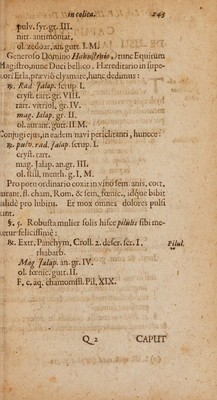 in colica. 243
pulv. syr. gr. III.
nitr. antimoniat.
ol. zedoar. an. gutt. I. M.
Generoso Domino nunc Equitum
Magistro, nunc Duci bellico. Hæreditario in supe-
iori Erla, prævió clysmate, hunc dedimus:
℞. Rad. Jalap. scrup. I.
cryst. tart. gr. VIII.
tart. vitriol. gr. IV.
mag. Jalap. gr. II.
ol. aurant. gutt. II M.
Conjugi ejus, in eadem navi periclitanti, hunc:
℞. pulv. rad. Jalap. scrup. I.
cryst. tart.
mag. Jalap. an. gr. III.
ol. still. menth. g. I, M.
Pro potu ordinario coxit in vino sem. anis, cort.
aurant. fl. cham. Rom. & sem. fœnic., idque bibit
calidè pro lubitu. Et mox omnes dolores pulsi
sunt.
§. 5. Robusta mulier solis hisce pilulis sibi me-
detur felicissimè:
℞. Extr. Panchym. Croll. 2. descr. scr. I. Pilul.
rhabarb.
Mag Jalap. an. gr. IV.
ol. fœnic. gutt. II.
F. c. aq. chamomill. Pil. XIX.
Q 2 CAPUT